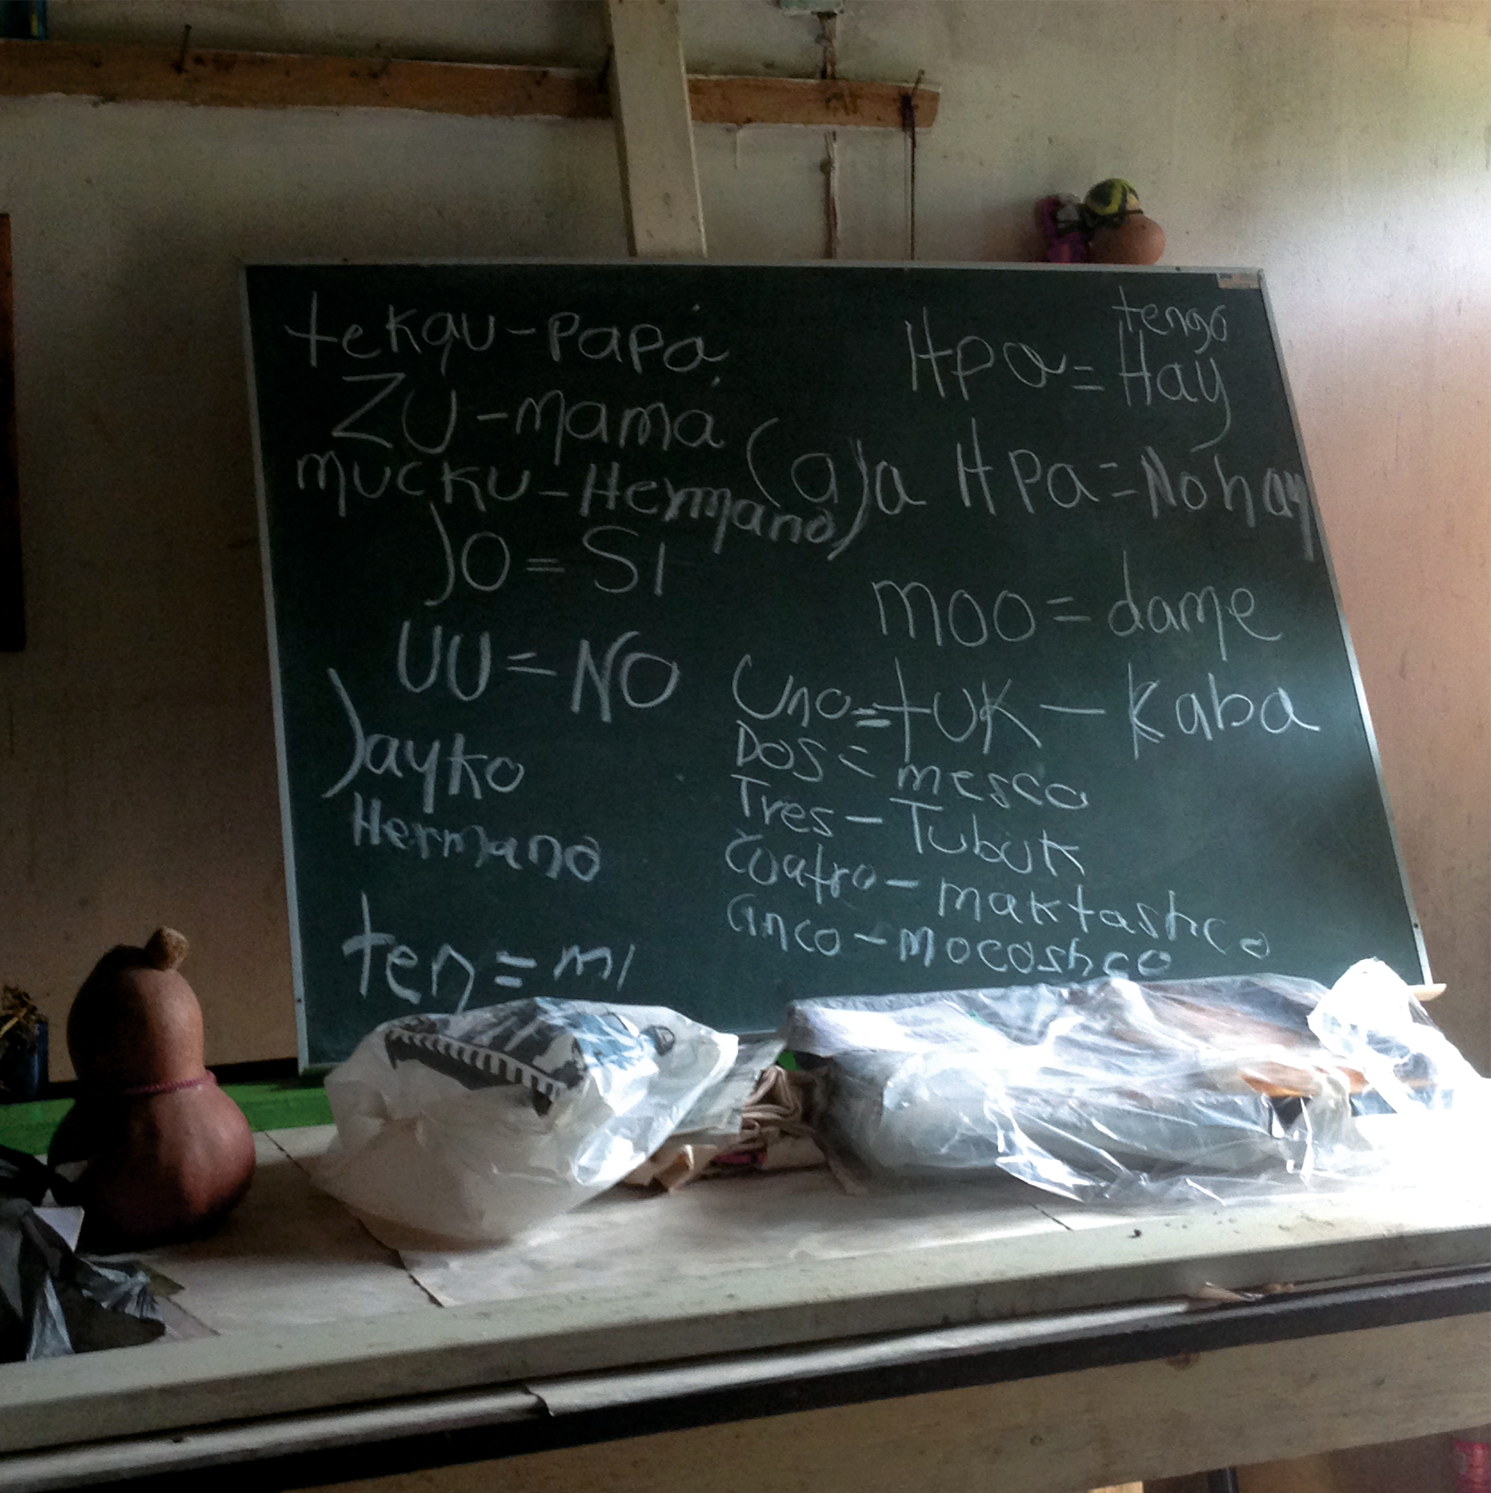 tekqu - papá
Zu - mamá
mucku - Hermano(a)
Jo = Si
UU = NO
Jayko
Hermano
ten = mi
tengo
Hpa = Hay
a Hpa = No hay
moo = dame
Uno = tuk - Kaba
Dos = mesco
Tres - Tubuk
Cuatro - maktashco
Cinco - mocoshco